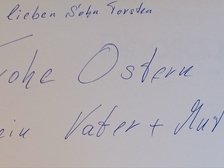 lieben Sohn Torsten
rohe Ostern
ein Vater + Mut